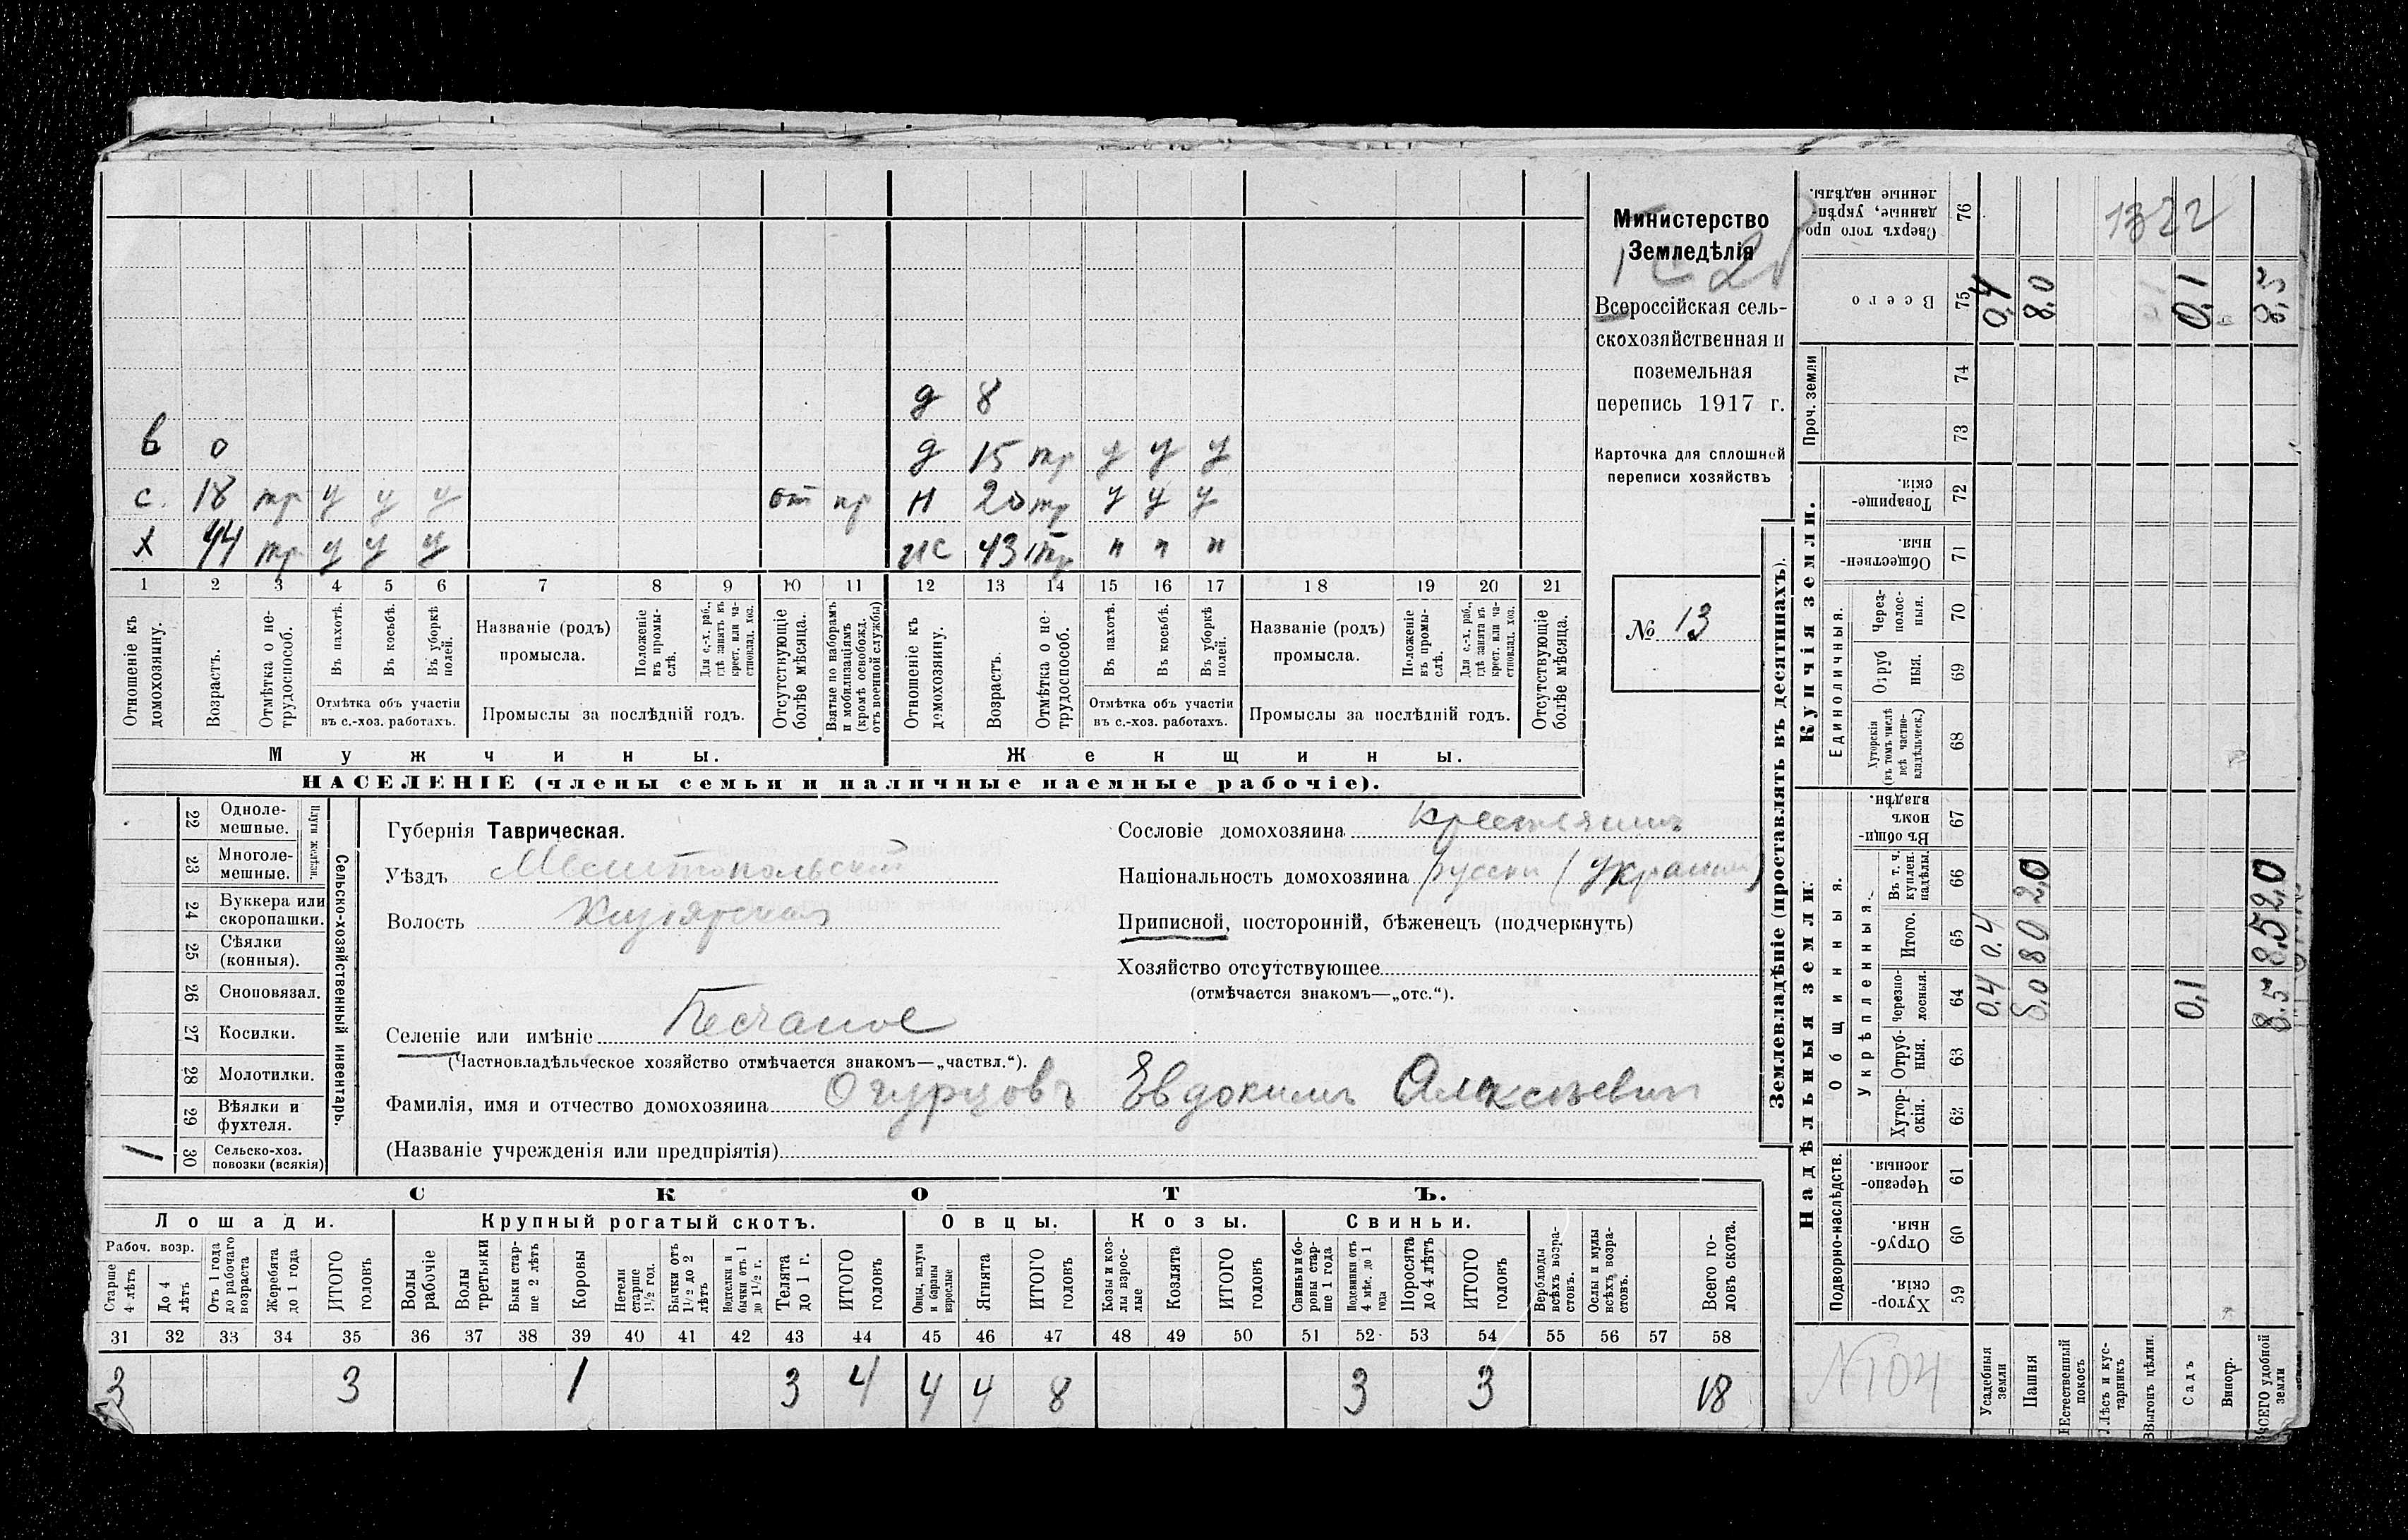 д 8
в 0
д 15 тр у у у
с. 18 тр у у у от пр
н 20 тр у у у
х 44 тр у у у
ис 43 тр п п п
1 2 3 4 5 6 7 8 9 10 11 12 13 14 15 16 17 18 19 20 21
Отношеніе къ домохозяину.
Возрастъ.
Отмѣтка о нетрудоспособ.
Въ пахотѣ.
Въ косьбѣ.
Въ уборкѣ полей.
Отмѣтка объ участіи
въ с.-хоз. работахъ.
Названіе (родъ)
промысла.
Положеніе въ промыслѣ.
Для с.-х. раб., гдѣ занятъ въ крест. или частновлад. хоз.
Промыслы за послѣдній годъ.
Отсутствующіе болѣе мѣсяца.
Взятые по наборамъ и мобилизаціямъ (кромѣ освобожд. отъ военной службы)
Отношеніе къ домохозяину.
Возрастъ.
Отмѣтка о нетрудоспособ.
Въ пахотѣ.
Въ косьбѣ.
Въ уборкѣ полей.
Отмѣтка объ участіи
въ с.-хоз. работахъ.
Названіе (родъ)
промысла.
Положеніе въ промыслѣ.
Для с.-х. раб., гдѣ занята въ крест. или частновлад. хоз.
Промыслы за послѣдній годъ.
Отсутствующіе болѣе мѣсяца.
Мужчины. Женщины.
НАСЕЛЕНІЕ (члены семьи и наличные наемные рабочіе).
Министерство
Земледѣлія
Всероссійская сель-
скохозяйственная и
поземельная
перепись 1917 г.
Карточка для сплошной
переписи хозяйствъ
№ 13
Сельско-хозяйственный инвентарь.
Плуги желѣзн.
22 Одноле-
мешные.
23 Многоле-
мешные.
24 Буккера или
скоропашки.
25 Сѣялки
(конныя).
26 Сноповязал.
27 Косилки.
28 Молотилки.
29 Вѣялки и
фухтеля.
1 30 Сельско-хоз.
повозки (всякія)
Губернія Таврическая.
Уѣздъ Мелитопольский
Волость
Селеніе или имѣніе Песчаное
(Частновладѣльческое хозяйство отмѣчается знакомъ—„частвл.“).
Фамилія, имя и отчество домохозяина Огурцовъ Евдокимъ Алексѣевич
(Названіе учрежденія или предпріятія)
Сословіе домохозяина крестьянинъ
Національность домохозяина русски (Украин)
Приписной, посторонній, бѣженецъ (подчеркнуть)
Хозяйство отсутствующее
(отмѣчается знакомъ—„отс.“).
СКОТЪ.
Лошади. Крупный рогатый скотъ. Овцы. Козы. Свиньи.
Рабоч. возр.
Старше 4 лѣтъ
До 4 лѣтъ
Отъ 1 года до рабочаго возраста
Жеребята до 1 года
ИТОГО головъ
Волы рабочіе
Волы третьяки
Быки старше 2 лѣтъ
Коровы
Нетели старше 1½ год.
Бычки отъ 1½ до 2 лѣтъ
Подтелки и бычки отъ 1 до 1½ г.
Телята до 1 г.
ИТОГО головъ
Овцы, валухи и бараны взрослые
Ягнята
ИТОГО головъ
Козы и козлы взрослые
Козлята
ИТОГО головъ
Свиньи и боровы старше 1 года
Подсвинки отъ 4 мѣс. до 1 года
Поросята до 4 лѣтъ
ИТОГО головъ
Верблюды всѣхъ возрастовъ.
Ослы и мулы всѣхъ возрастовъ.
Всего головъ скота.
31 32 33 34 35 36 37 38 39 40 41 42 43 44 45 46 47 48 49 50 51 52 53 54 55 56 57 58
3 3 1 3 4 4 4 8 3 3 18
Землевладѣніе (проставлять въ десятинахъ).
Сверхъ того проданные, укрѣпленные надѣлы. 76
1322
Всего 75 0,4 8,0 0,1 8,5
Проч. земли
74
73
Купчія земли.
Товарищескія. 72
Общественныя. 71
Единоличныя.
Черезполосныя. 70
Отрубныя. 69
Хуторскія (въ томъ числѣ всѣ частновладѣльческ.) 68
Надѣльныя земли.
Общинныя.
Въ общинномъ владѣн. 67
Укрѣпленныя.
Въ т. ч. куплен. надѣлы. 66 2,0 2,0
Итого. 65 0.4 8,0 8,5
Черезполосныя. 64 0.4 8,0 0,1 8.5
Отрубныя. 63
Хуторскія. 62
Подворно-наслѣдств.
Черезполосныя. 61
Отрубныя. 60
Хуторскія. 59
№104
Усадебныя земли
Пашня
Естественный покосъ
Лѣсъ и кустарникъ
Выгонъ цѣлин.
Садъ
Виногр.
ВСЕГО удобной земли